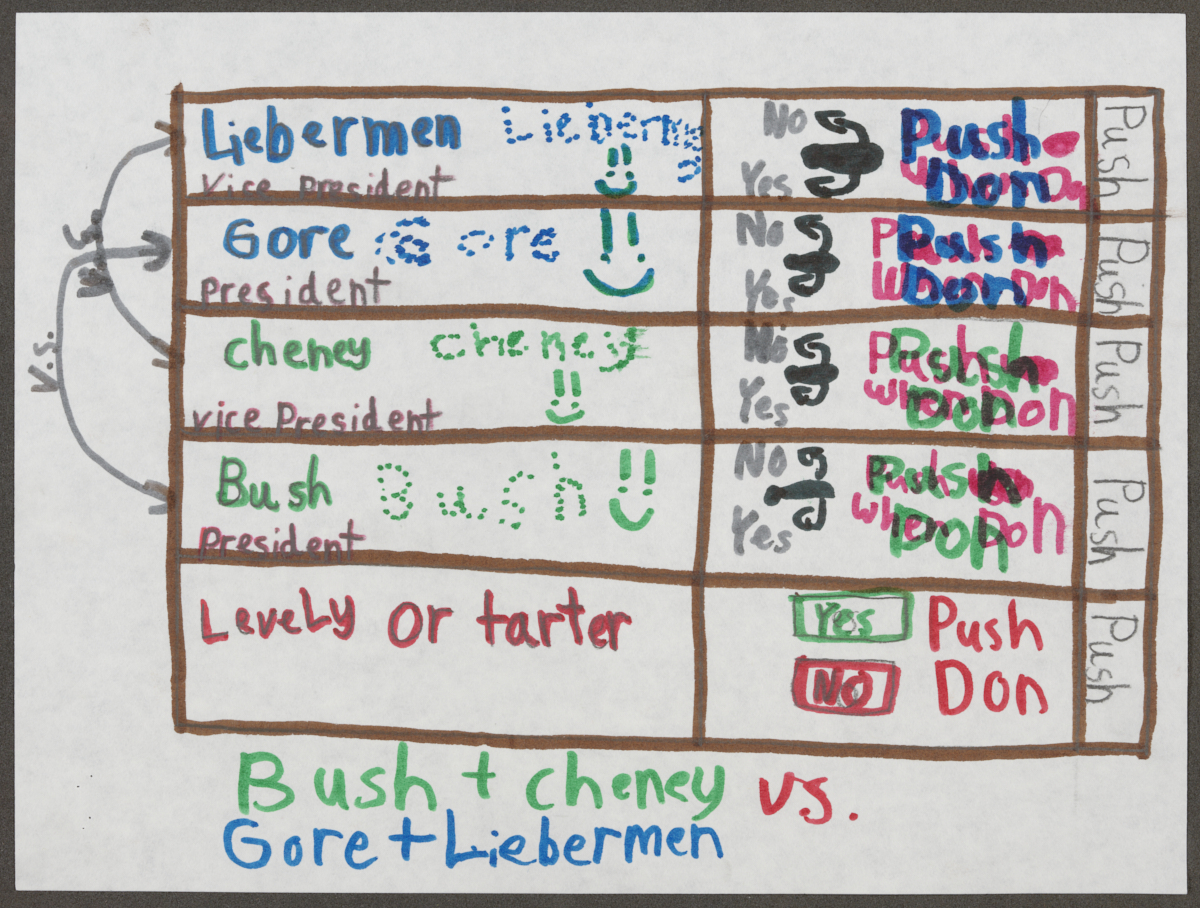 Liebermen Lieberme
Vice President
No
Yes
Push
Don
Push
Gore Gore
President
No
Yes
Push
When Don
Push
cheney cheney
vice President
No
Yes
Push
when Don
Push
Bush Bush
President
No
Yes
Push
when Don
Push
Levely or tarter
Yes Push
No Don
Push
V.s.
V.s.
Bush + cheney vs.
Gore + Liebermen